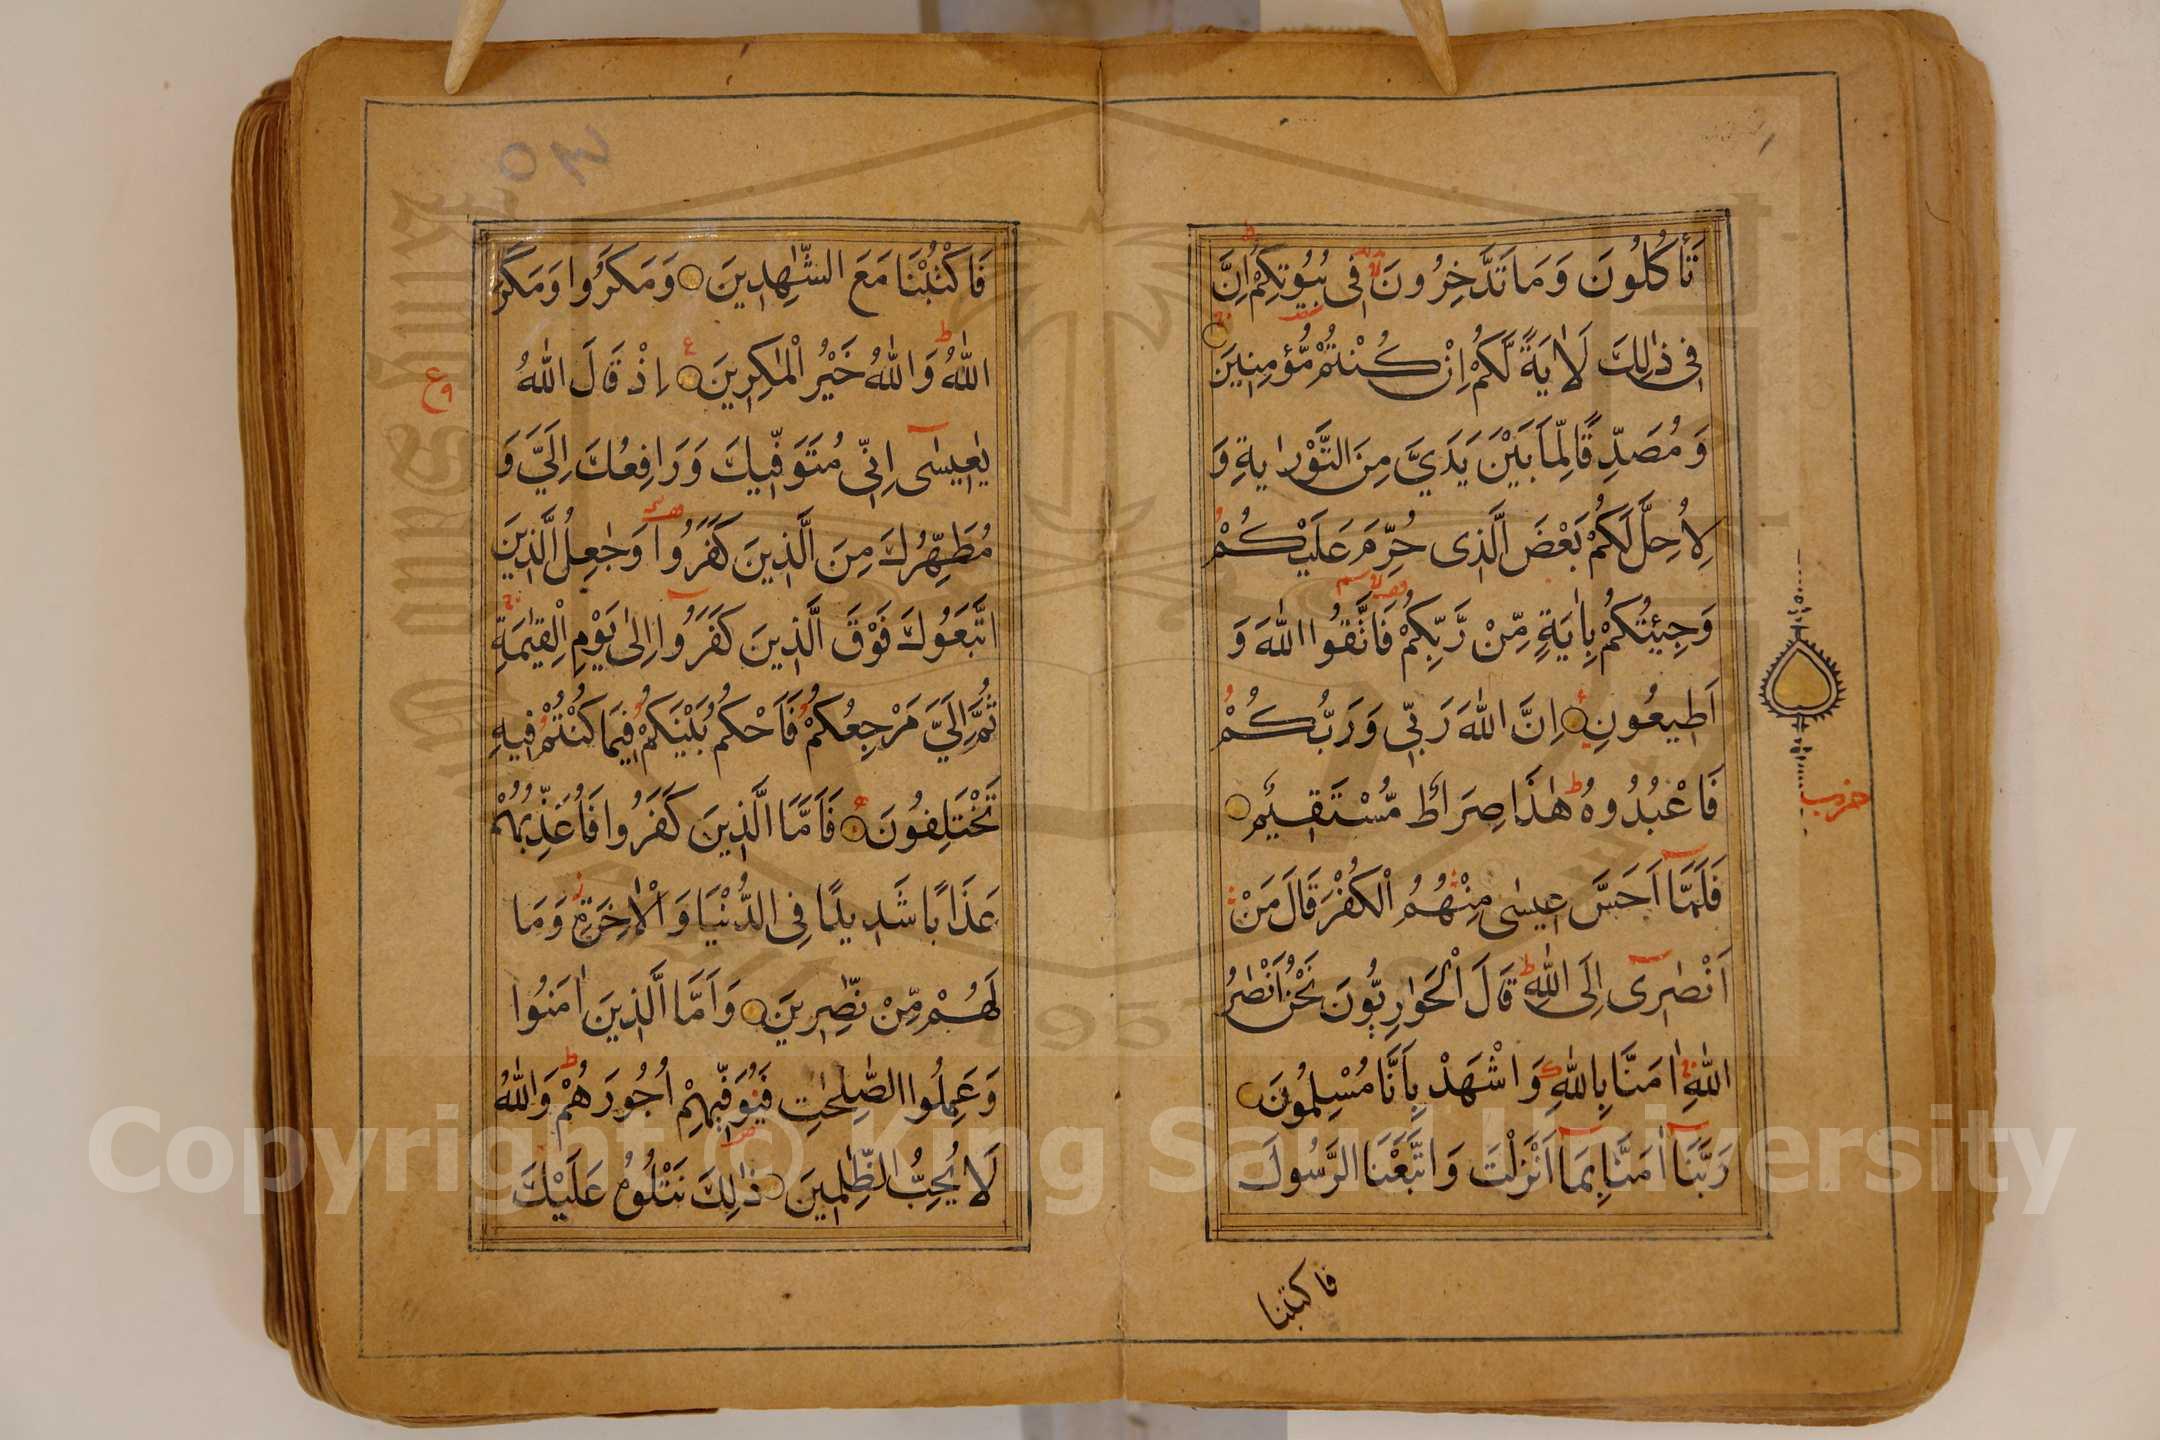 تَأْكُلُونَ وَمَا تَدَّخِرُونَ فِى بُيُوتِكُمْ اِنَّ
فِى ذٰلِكَ لَاٰيَةً لَّكُمْ اِنْ كُنْتُمْ مُّؤْمِنِينَ
وَمُصَدِّقًا لِّمَا بَيْنَ يَدَيَّ مِنَ التَّوْرٰيةِ وَ
لِاُحِلَّ لَكُمْ بَعْضَ الَّذِى حُرِّمَ عَلَيْكُمْ
وَجِئْتُكُمْ بِاٰيَةٍ مِّنْ رَّبِّكُمْ فَاتَّقُوا اللّٰهَ وَ
اَطِيعُونِ اِنَّ اللّٰهَ رَبِّى وَرَبُّكُمْ
فَاعْبُدُوهُ هٰذَا صِرَاطٌ مُّسْتَقِيمٌ
فَلَمَّا اَحَسَّ عِيسٰى مِنْهُمُ الْكُفْرَ قَالَ مَنْ
اَنْصَارِى اِلَى اللّٰهِ قَالَ الْحَوَارِيُّونَ نَحْنُ اَنْصَارُ
اللّٰهِ اٰمَنَّا بِاللّٰهِ وَاشْهَدْ بِاَنَّا مُسْلِمُونَ
رَبَّنَا اٰمَنَّا بِمَا اَنْزَلْتَ وَاتَّبَعْنَا الرَّسُولَ
فاكتبنا
حزب
فَاكْتُبْنَا مَعَ الشّٰهِدِينَ وَمَكَرُوا وَمَكَرَ
اللّٰهُ وَاللّٰهُ خَيْرُ الْمٰكِرِينَ اِذْ قَالَ اللّٰهُ
يٰعِيسٰى اِنِّى مُتَوَفِّيكَ وَرَافِعُكَ اِلَيَّ وَ
مُطَهِّرُكَ مِنَ الَّذِينَ كَفَرُوا وَجَاعِلُ الَّذِينَ
اتَّبَعُوكَ فَوْقَ الَّذِينَ كَفَرُوا اِلٰى يَوْمِ الْقِيٰمَةِ
ثُمَّ اِلَيَّ مَرْجِعُكُمْ فَاَحْكُمُ بَيْنَكُمْ فِيمَا كُنْتُمْ فِيهِ
تَخْتَلِفُونَ فَاَمَّا الَّذِينَ كَفَرُوا فَاُعَذِّبُهُمْ
عَذَابًا شَدِيدًا فِى الدُّنْيَا وَالْاٰخِرَةِ وَمَا
لَهُمْ مِّنْ نّٰصِرِينَ وَاَمَّا الَّذِينَ اٰمَنُوا
وَعَمِلُوا الصّٰلِحٰتِ فَيُوَفِّيهِمْ اُجُورَهُمْ وَاللّٰهُ
لَا يُحِبُّ الظّٰلِمِينَ ذٰلِكَ نَتْلُوهُ عَلَيْكَ
Copyright © King Saud University
1957